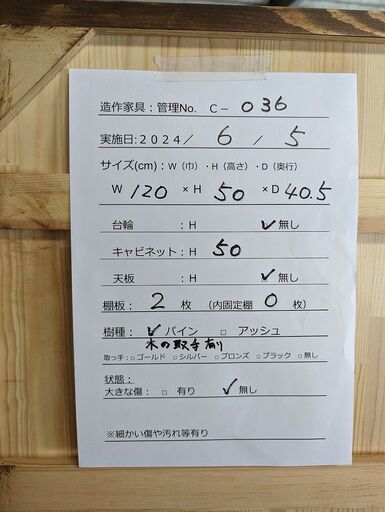 造作家具：管理No. C－ 036
実施日:２０２４／ 6 ／ 5
サイズ(cm)：W（巾）・H（高さ）・D（奥行）
W 120 ×H 50 ×D 40.5
台輪 ：H ✓無し
キャビネット：H 50
天板 ：H ☑無し
棚板： 2 枚 （内固定棚 0 枚）
樹種： ☑パイン □ アッシュ
木の取手有り
取っ手：□ゴールド □シルバー □ブロンズ □ブラック □無し
状態：
大きな傷： □ 有り ✓無し
※細かい傷や汚れ等有り